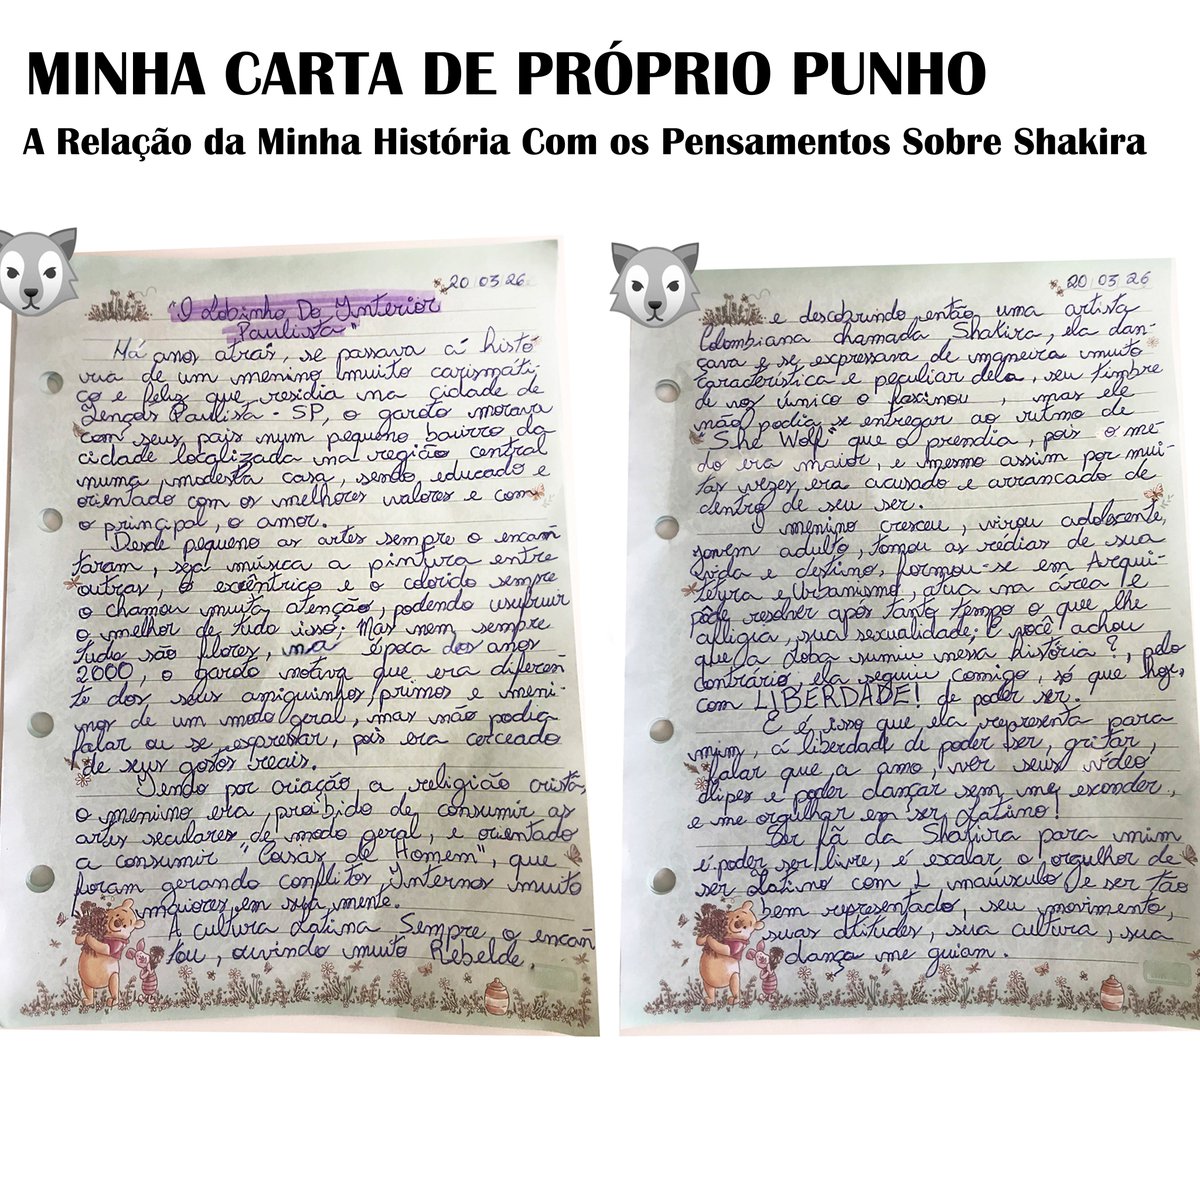 MINHA CARTA DE PRÓPRIO PUNHO
A Relação da Minha História Com os Pensamentos Sobre Shakira
20 03 26
"O Lobinho Do Interior
Paulista"
Há anos atrás, se passava á histó
ria de um menino muito carismáti
ço e feliz que residia na cidade de
Lençóis Paulista - SP, o garoto morava
com seus pais num pequeno bairro da
cidade localizada na região central
numa modesta casa, sendo educado e
orientado com os melhores valores e com
o principal, o amor.
Desde pequeno as artes sempre o encan
taram, seja música a pintura entre
outras, o excêntrico e o colorido sempre
o chamou muita atenção, podendo usufruir
o melhor de tudo isso; Mas nem sempre
tudo são flores, na época dos anos
2000, o garoto notava que era diferen
te dos seus amiguinhos, primos e meni-
nos de um modo geral, mas não podia
falar ou se expressar, pois era cerceado
de seus gostos reais.
Tendo por criação a religião cristã,
o menino era proibido de consumir as
artes seculares de modo geral, e orientado
a consumir "Coisas de Homem", que
foram gerando conflitos Internos muito
maiores em sua mente.
A cultura Latina Sempre o encan
tou, ouvindo muito Rebelde,
20 03 26
e descobrindo então uma artista
Colombiana chamada Shakira, ela dan-
çava e se expressava de maneira muito
característica e peculiar dela, seu timbre
de voz único o fascinou, mas ele
não podia se entregar ao ritmo de
"She Wolf" que o prendia, pois o me-
do era maior, e mesmo assim por mui-
tas vezes era acusado e arrancado de
dentro de seu ser.
O menino cresceu, virou adolescente,
jovem adulto, tomou as rédias de sua
vida e destino, formou-se em Arqui-
tetura e Urbanismo, atua na área e
pôde resolver após tanto tempo o que lhe
afligia, sua sexualidade; E você achou
que a Loba sumiu nessa história?, pelo
contrário, ela seguiu comigo, só que hoje,
com LIBERDADE! de poder ser.
E é isso que ela representa para
mim, á liberdade de poder ser, gritar,
falar que a amo, ver seus vídeo
clipes e poder dançar sem me esconder,
e me orgulhar em ser Latino!
Ser fã da Shakira para mim
é poder ser livre, é exalar o orgulho de
ser Latino com L maiúsculo e ser tão
bem representado, seu movimento,
suas atitudes, sua cultura, sua
dança me guiam.